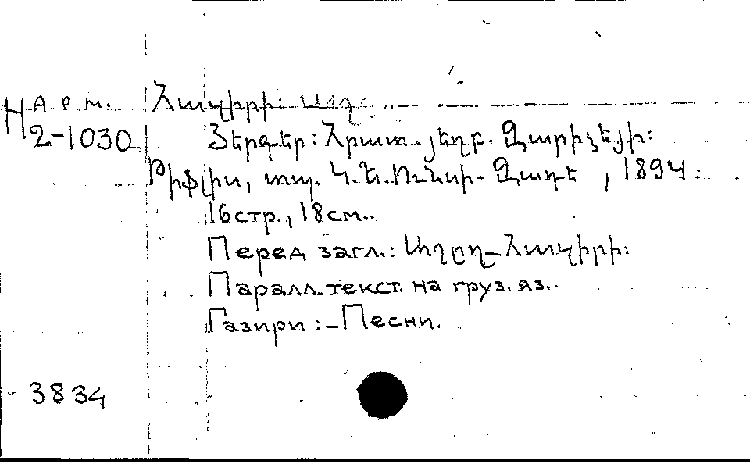 Н арм. Խազիրի Աղա..
2-1030 Յերգեր: Հրատ. յեղբ. Զարիչեյի:
Թիֆլիս, տպ. Կ. Ն. , 1894.
16стр., 18см..
Перед загл.: Աղըղ- Խազիրի:
Паралл. текст на груз. яз..
Газири: - Песни.
3834